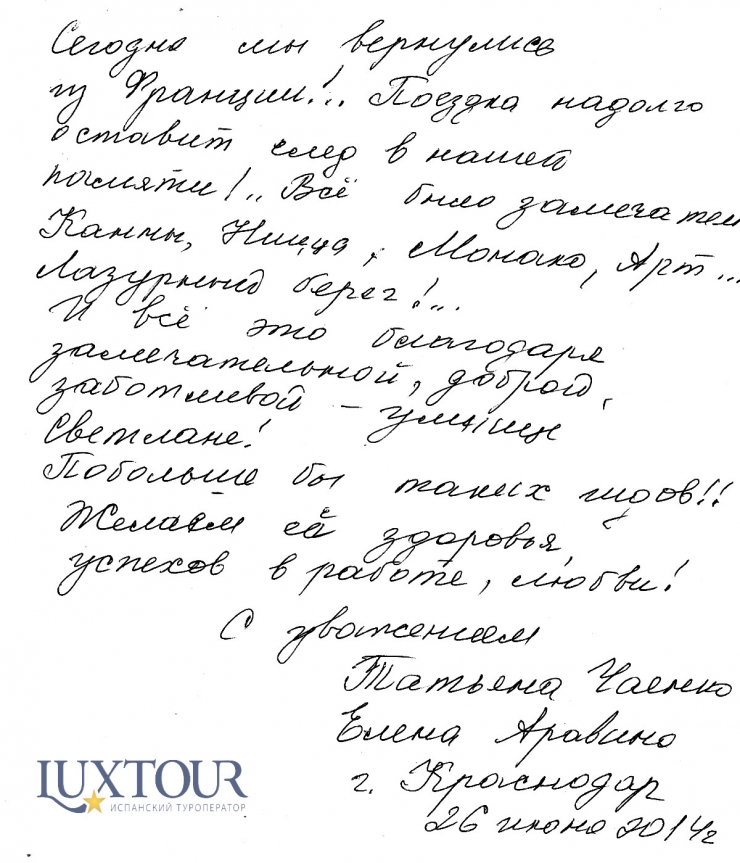 Сегодня мы вернулись
из Франции!.. Поездка надолго
оставит след в нашей
памяти!.. Всё было замечател
Канны, Ницца, Монако, Арт...
Лазурный берег!...
И всё это благодаря
замечательной, доброй,
заботливой – умнице
Светлане!
Побольше бы таких гидов!!
Желаем ей здоровья,
успехов в работе, любви!
С уважением
Татьяна Чаенко
Елена Аравино
г. Краснодар
26 июня 2014г
LUXTOUR
ИСПАНСКИЙ ТУРОПЕРАТОР